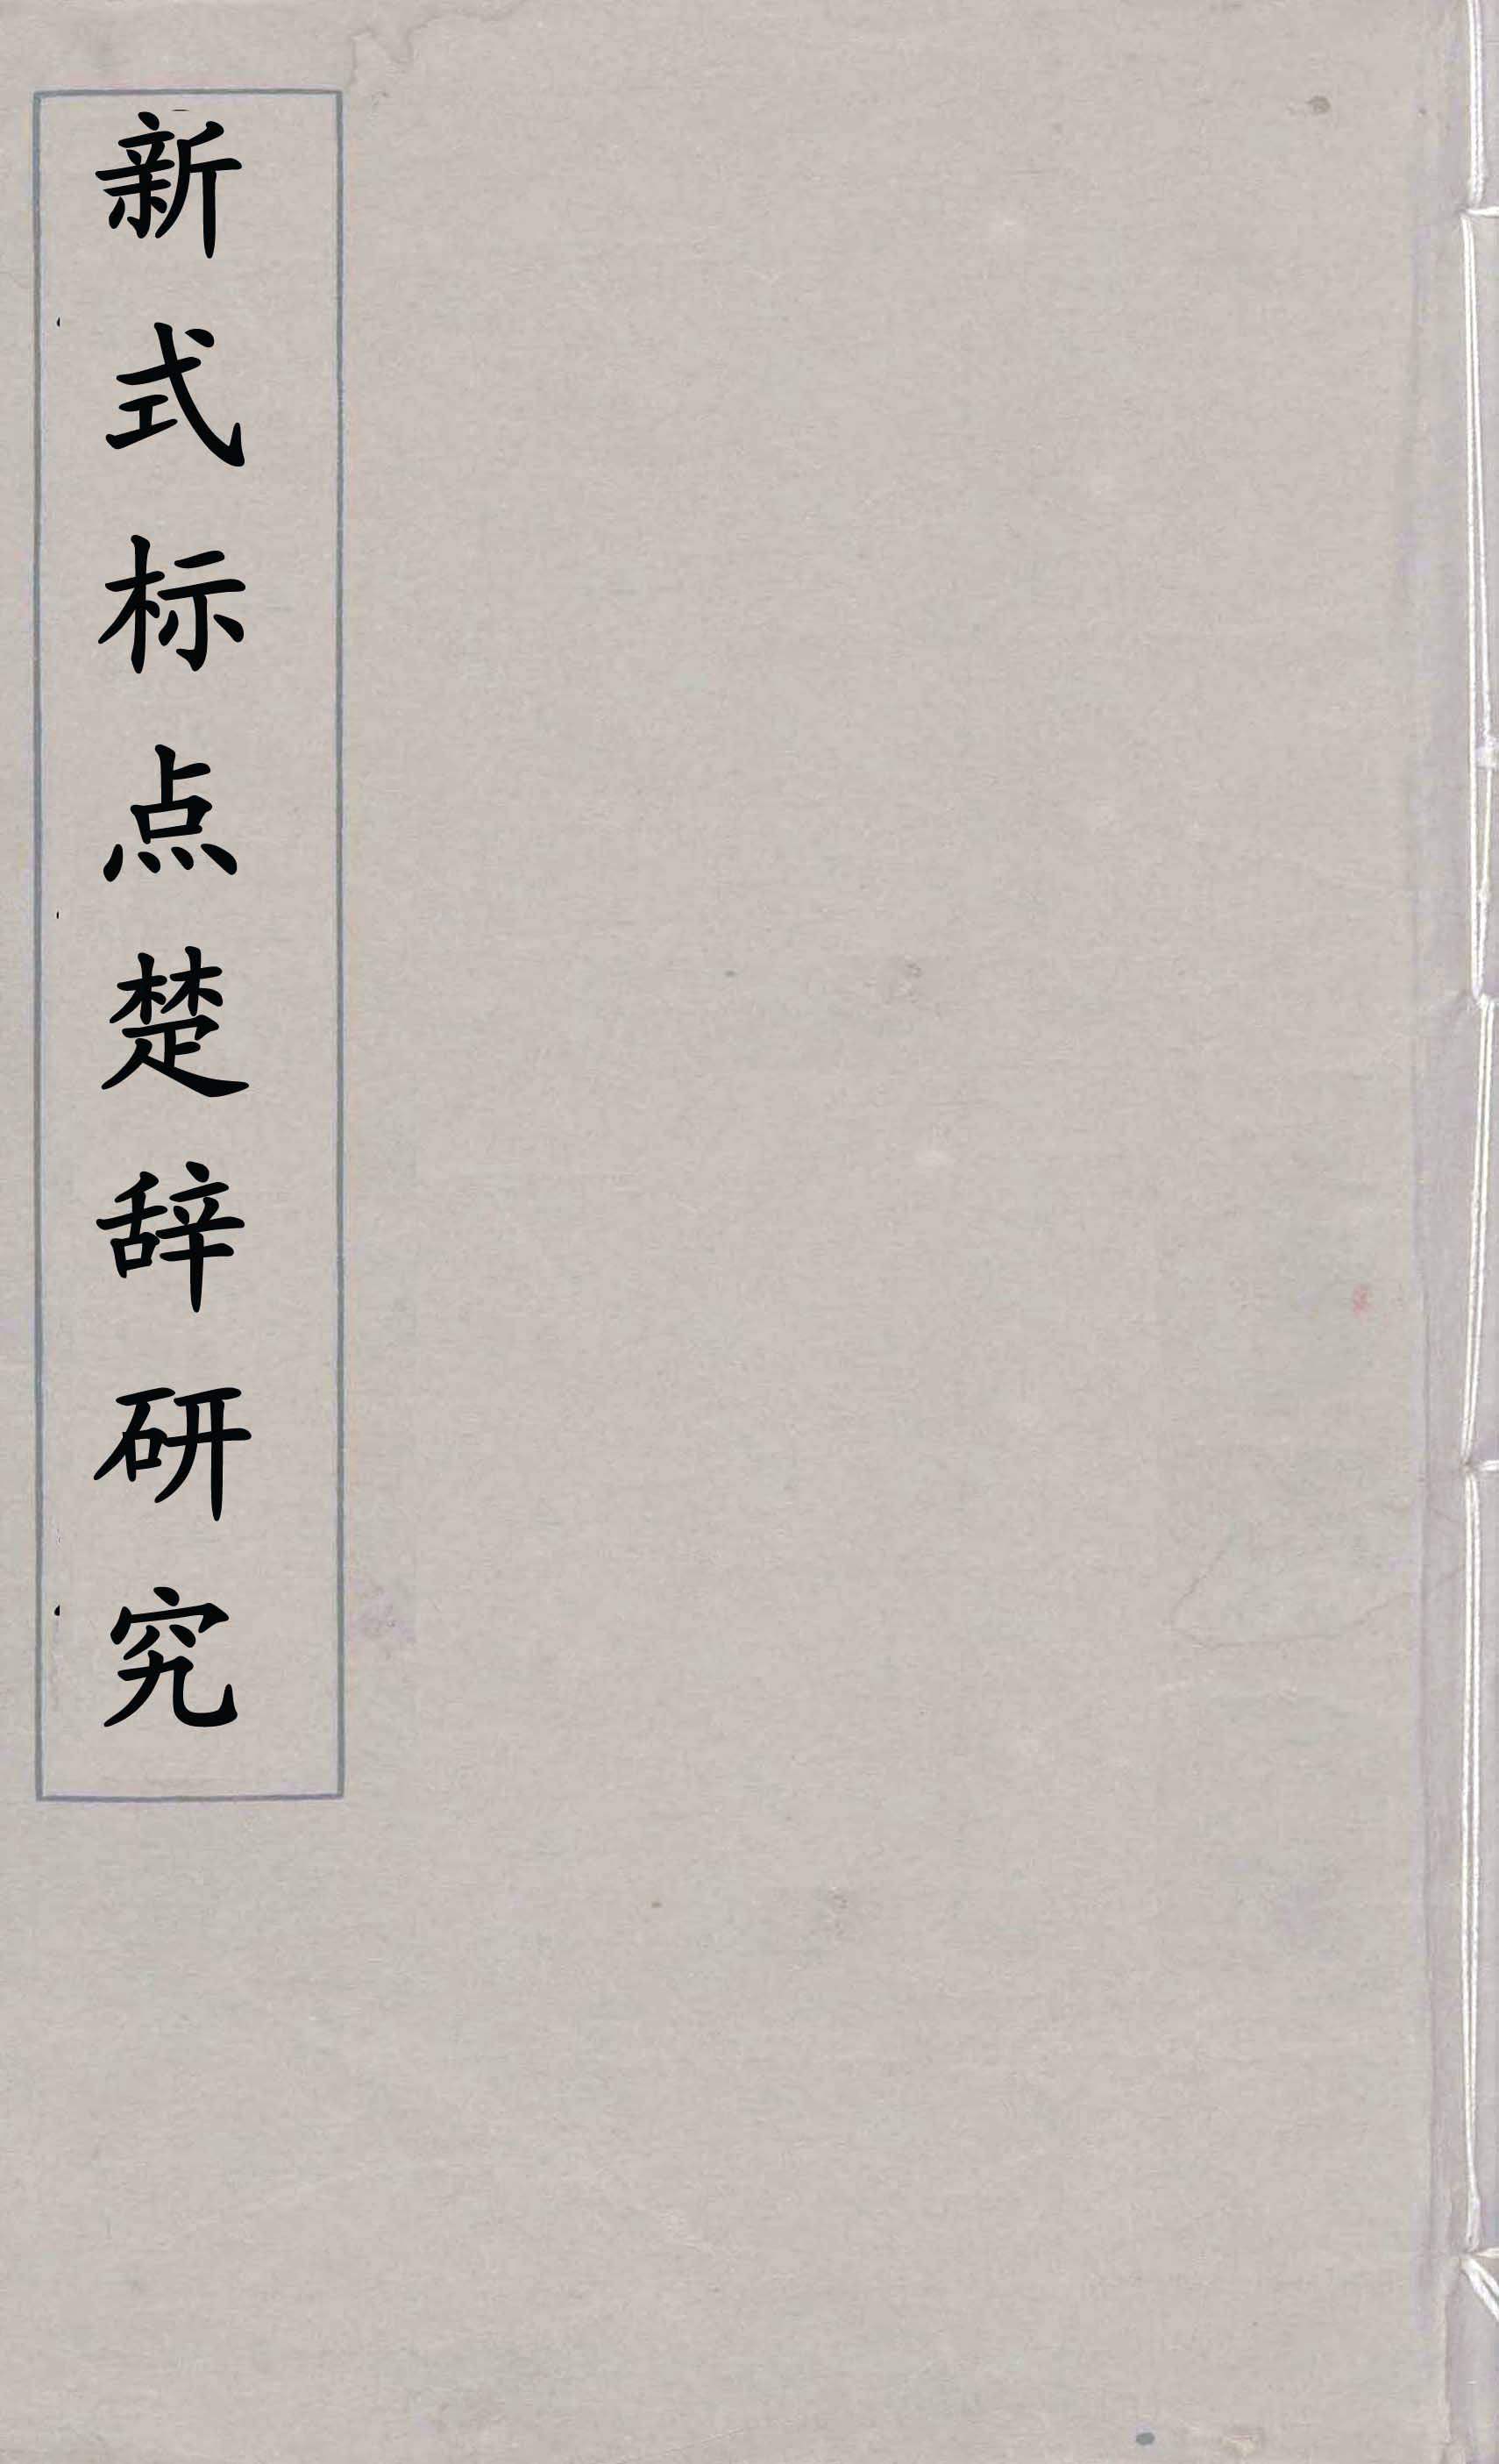 新式标点楚辞研究